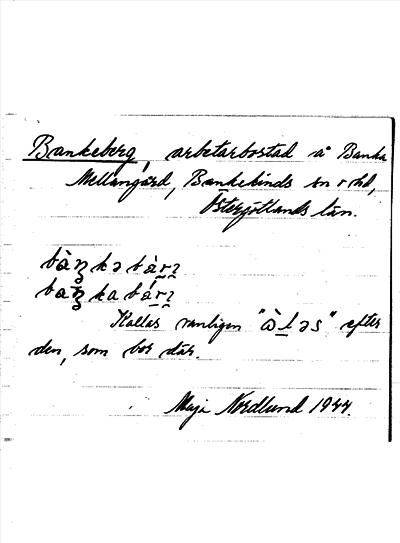 Bankeberg, arbetarbostad å Banka
Mellangård, Bankekinds sn o hd,
Östergötlands län.
bàŋkəbàr̥ı̥
baŋkabár̥ı̥
Kallas vanligen "ὼləs" efter
den, som bor där.
Maja Nordlund 1944.